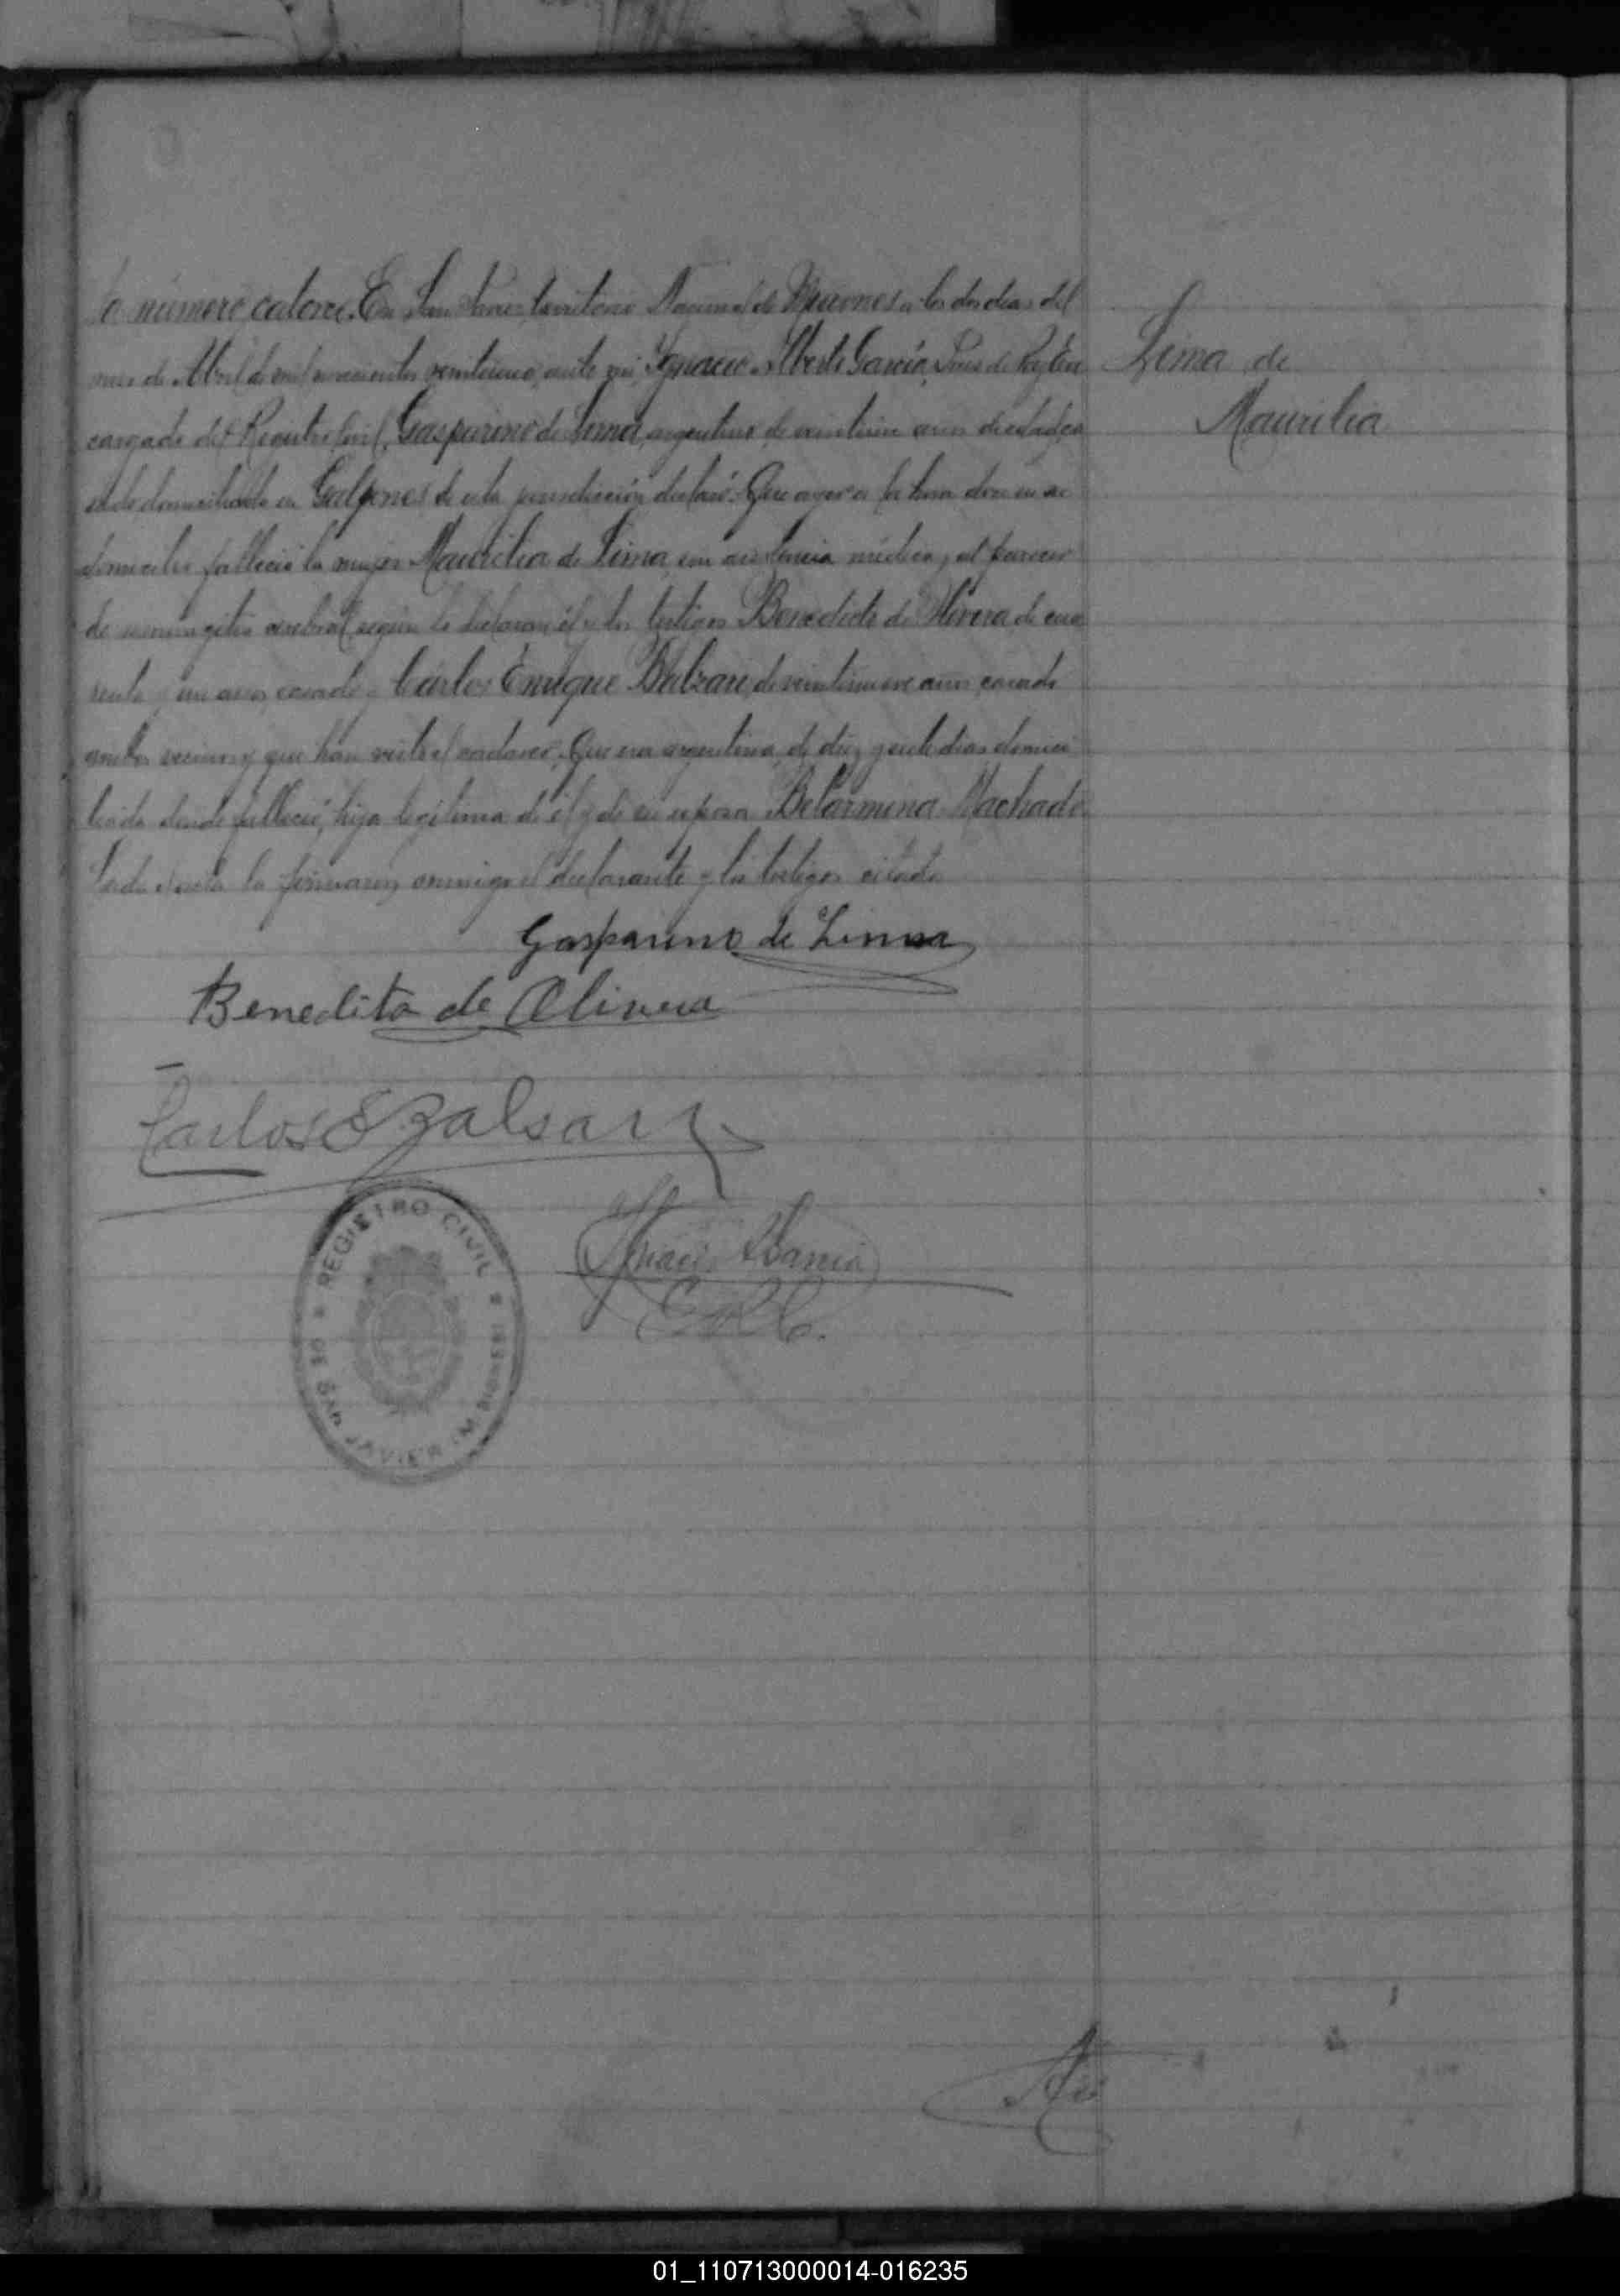 o número catorce. En San Javier territorio Nacional de Misiones a los dos dias del
mes de Abril de mil novecientos veinticinco, ante mi, Ignacio Alberto García, Juez de Paz y En
cargado del Registro Civil, Gasparino de Lima, argentino, de años de edad, ca
sado domiciliado en Galpones de esta jurisdicción declaró: Que ayer a la hora doce en su
domicilio falleció la mujer Maurilia de Lima, asistencia médica, y al parecer
de meningitis cerebral según lo declaran él y los testigos Benedicto de Olivera de cua
renta y un años, casado y Carlos Enrique Balzari, de veintinueve años, casado
ambos vecinos y que han visto el cadaver; Que era argentina, de diez y siete dias domici
liada donde falleció, hija legítima de él y de su esposa Belarmina Machado.
Leida el acta la firmaron conmigo el declarante y los testigos citados
Gasparino de Limaa
Benedito de Olivera
Carlos E Balsari
Ignacio A Garcia
E. R. C.
REGISTRO CIVIL
DE SAN JAVIER (MISIONES)
Lima de
Maurilia
01_110713000014-016235